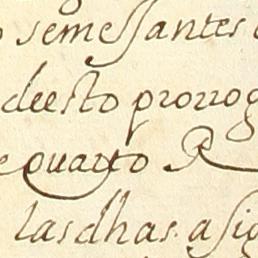 semeſſantes
deesto prorrog
e quatro R
las dhas a sig